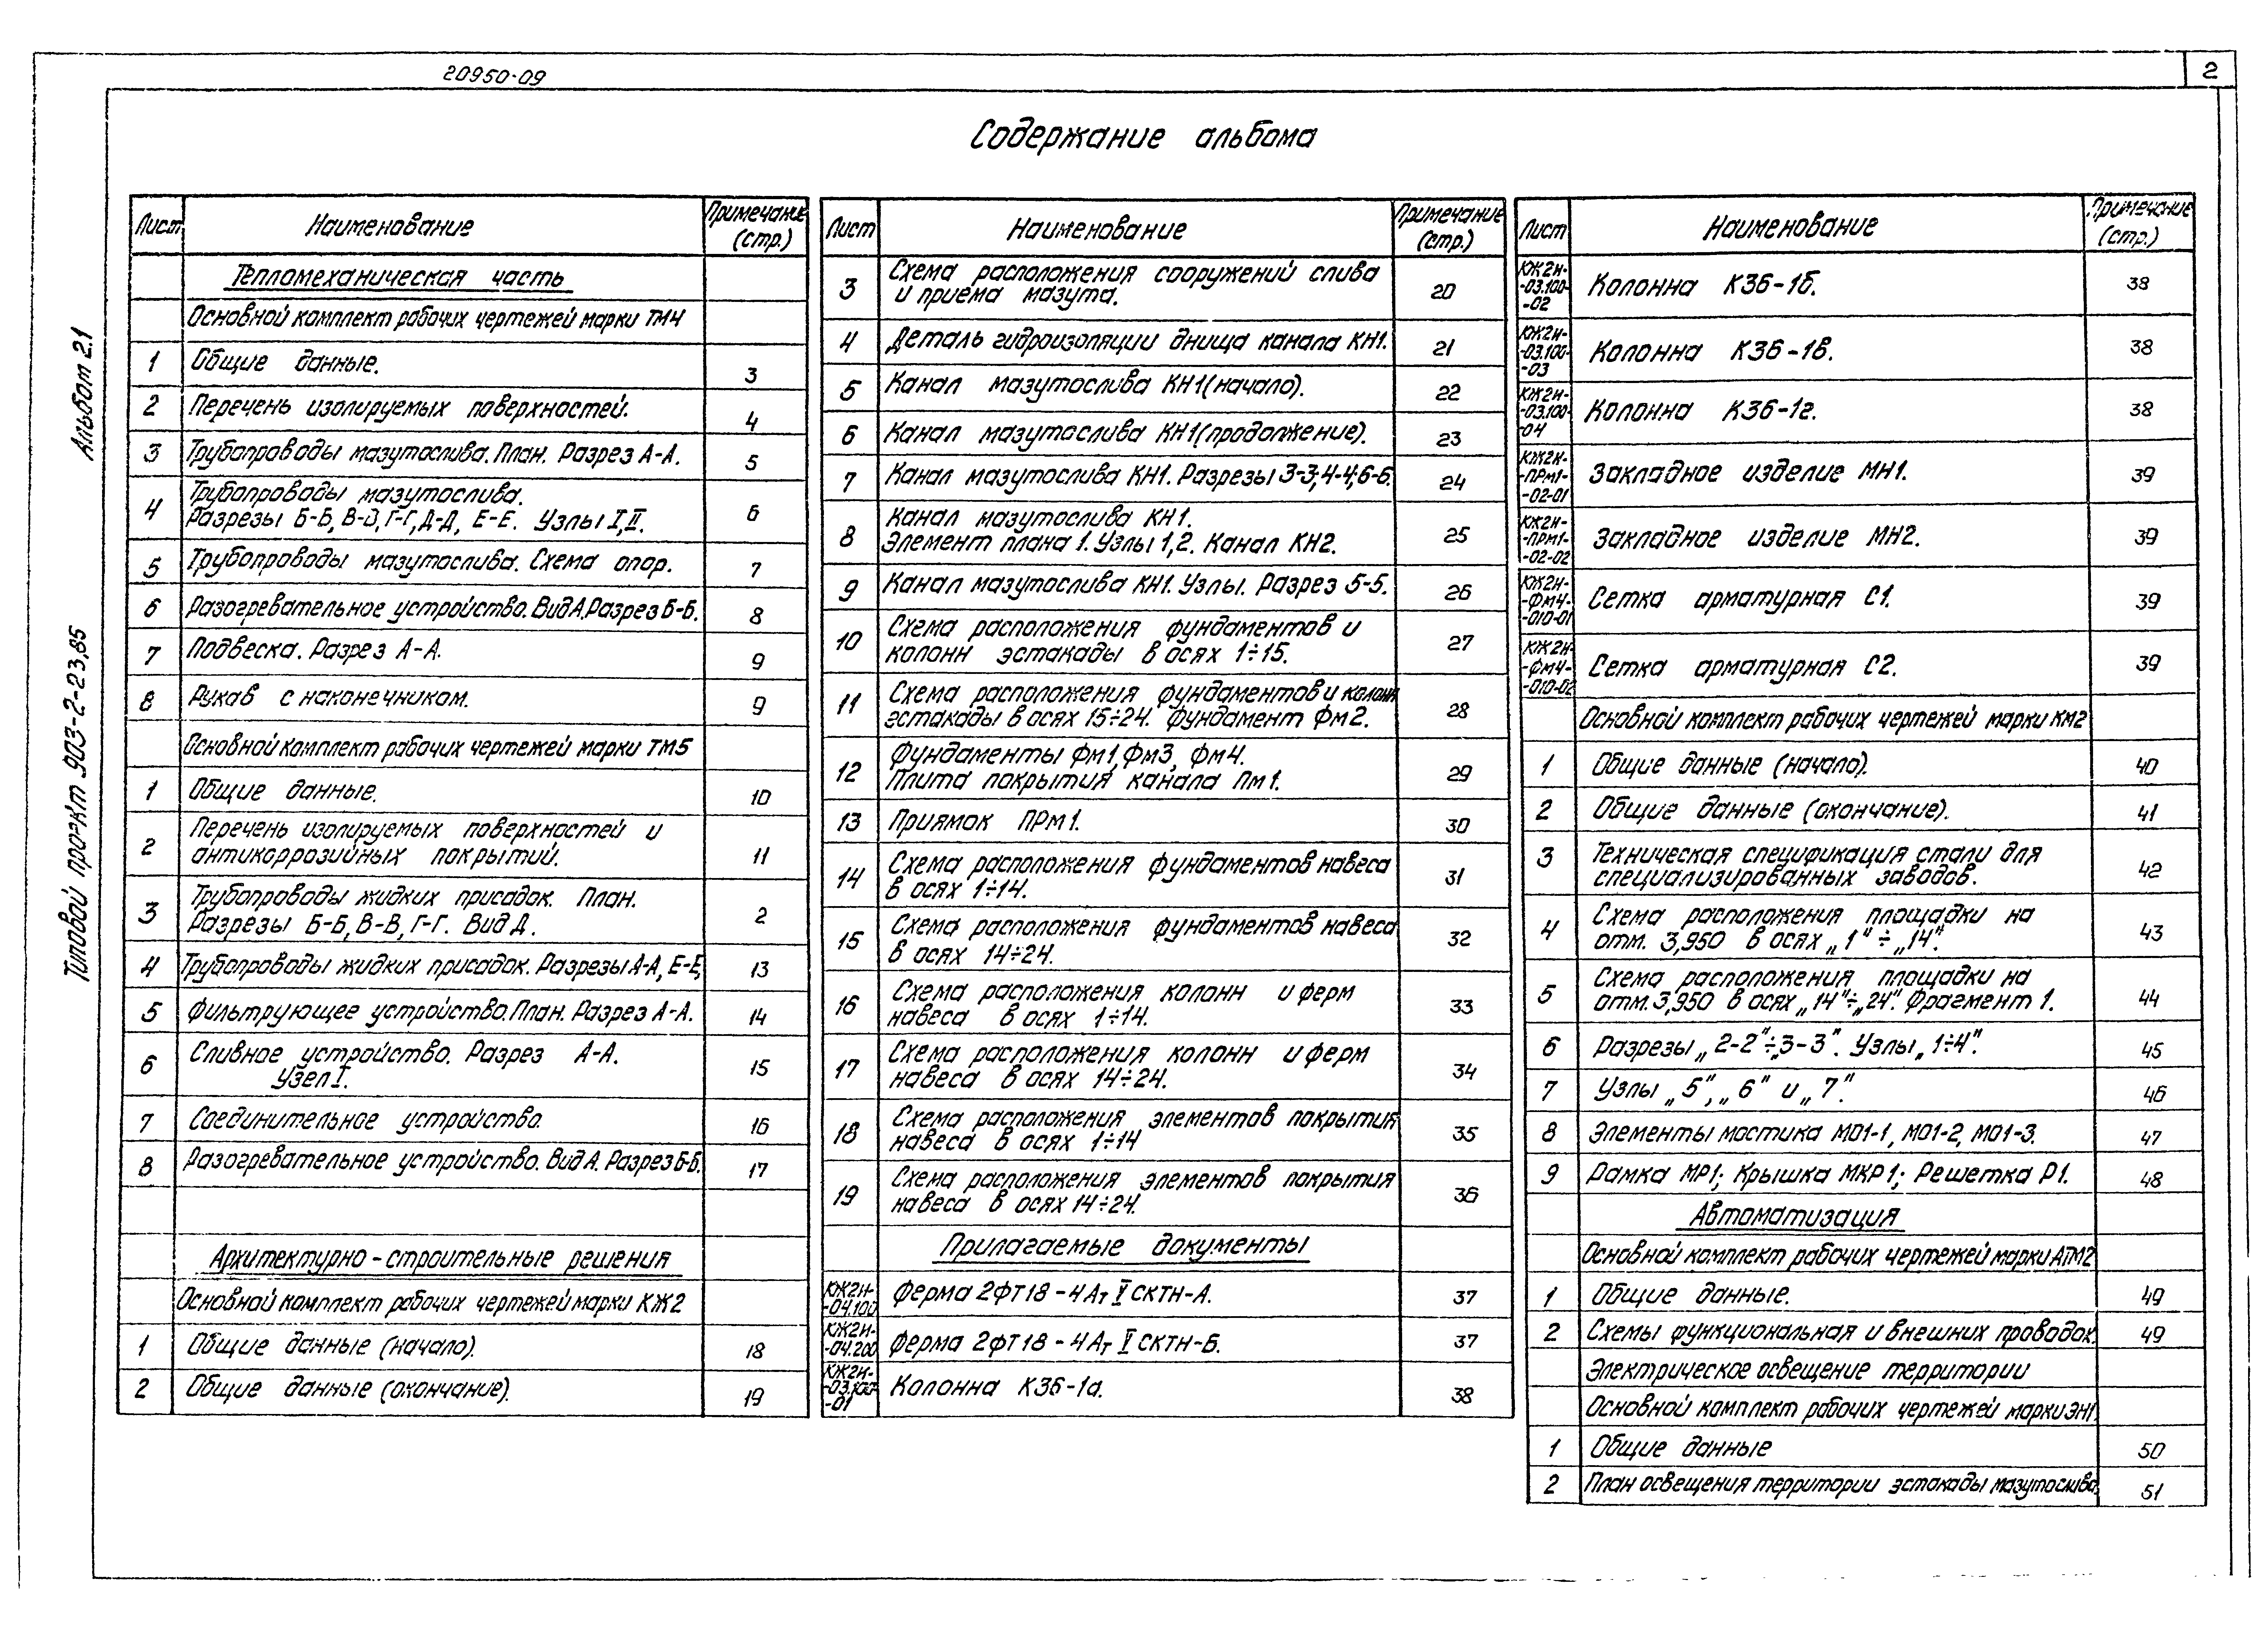 20950-09
2
Содержание альбома
Альбом 2.1
Типовой проект 903-2-23.85
Лист Наименование Примечание (стр.)
Тепломеханическая часть
Основной комплект рабочих чертежей марки ТМ4
1 Общие данные. 3
2 Перечень изолируемых поверхностей. 4
3 Трубопроводы мазутослива. План. Разрез А-А. 5
4 Трубопроводы мазутослива.
Разрезы Б-Б, В-В, Г-Г, Д-Д, Е-Е. Узлы I, II. 6
5 Трубопроводы мазутослива. Схема опор. 7
6 Разогревательное устройство. Вид А. Разрез Б-Б. 8
7 Подвеска. Разрез А-А. 9
8 Рукав с наконечником. 9
Основной комплект рабочих чертежей марки ТМ5
1 Общие данные. 10
2 Перечень изолируемых поверхностей и
антикоррозийных покрытий. 11
3 Трубопроводы жидких присадок. План.
Разрезы Б-Б, В-В, Г-Г. Вид Д. 2
4 Трубопроводы жидких присадок. Разрезы А-А, Е-Е, 13
5 Фильтрующее устройство. План. Разрез А-А. 14
6 Сливное устройство. Разрез А-А.
Узел I. 15
7 Соединительное устройство. 16
8 Разогревательное устройство. Вид А. Разрез Б-Б. 17
Архитектурно-строительные решения
Основной комплект рабочих чертежей марки КЖ2
1 Общие данные (начало). 18
2 Общие данные (окончание). 19
Лист Наименование Примечание (стр.)
3 Схема расположения сооружений слива
и приема мазута. 20
4 Деталь гидроизоляции днища канала КН1. 21
5 Канал мазутослива КН1 (начало). 22
6 Канал мазутослива КН1 (продолжение). 23
7 Канал мазутослива КН1. Разрезы 3-3, 4-4, 6-6. 24
8 Канал мазутослива КН1.
Элемент плана 1. Узлы 1,2. Канал КН2. 25
9 Канал мазутослива КН1. Узлы. Разрез 5-5. 26
10 Схема расположения фундаментов и
колонн эстакады в осях 1÷15. 27
11 Схема расположения фундаментов и колонн
эстакады в осях 15÷24. Фундамент Фм2. 28
12 Фундаменты Фм1, Фм3, Фм4.
Плита покрытия канала Пм1. 29
13 Приямок ПРм1. 30
14 Схема расположения фундаментов навеса
в осях 1÷14. 31
15 Схема расположения фундаментов навеса
в осях 14÷24. 32
16 Схема расположения колонн и ферм
навеса в осях 1÷14. 33
17 Схема расположения колонн и ферм
навеса в осях 14÷24. 34
18 Схема расположения элементов покрытия
навеса в осях 1÷14 35
19 Схема расположения элементов покрытия
навеса в осях 14÷24. 36
Прилагаемые документы
КЖ2И-
-04.100 Ферма 2ФТ18-4АтV СКТН-А. 37
КЖ2И-
-04.200 Ферма 2ФТ18-4АтV СКТН-Б. 37
КЖ2И-
-03.100-
-01 Колонна К36-1а. 38
Лист Наименование Примечание (стр.)
КЖ2И-
-03.100-
-02 Колонна К36-1б. 38
КЖ2И-
-03.100-
-03 Колонна К36-1в. 38
КЖ2И-
-03.100-
-04 Колонна К36-1г. 38
КЖ2И-
-ПРм1-
-02-01 Закладное изделие МН1. 39
КЖ2И-
-ПРм1-
-02-02 Закладное изделие МН2. 39
КЖ2И-
-Фм4-
-010-01 Сетка арматурная С1. 39
КЖ2И-
-Фм4-
-010-02 Сетка арматурная С2. 39
Основной комплект рабочих чертежей марки КМ2
1 Общие данные (начало). 40
2 Общие данные (окончание). 41
3 Техническая спецификация стали для
специализированных заводов. 42
4 Схема расположения площадки на
отм. 3,950 в осях „1"÷„14". 43
5 Схема расположения площадки на
отм. 3,950 в осях „14"÷„24". Фрагмент 1. 44
6 Разрезы „2-2"÷„3-3". Узлы „1÷4". 45
7 Узлы „5", „6" и „7". 46
8 Элементы мостика МО1-1, МО1-2, МО1-3. 47
9 Рамка МР1; Крышка МКР1; Решетка Р1. 48
Автоматизация
Основной комплект рабочих чертежей марки АТМ2
1 Общие данные. 49
2 Схемы функциональная и внешних проводок. 49
Электрическое освещение территории
Основной комплект рабочих чертежей марки ЭН1.
1 Общие данные 50
2 План освещения территории эстакады мазутослива. 51